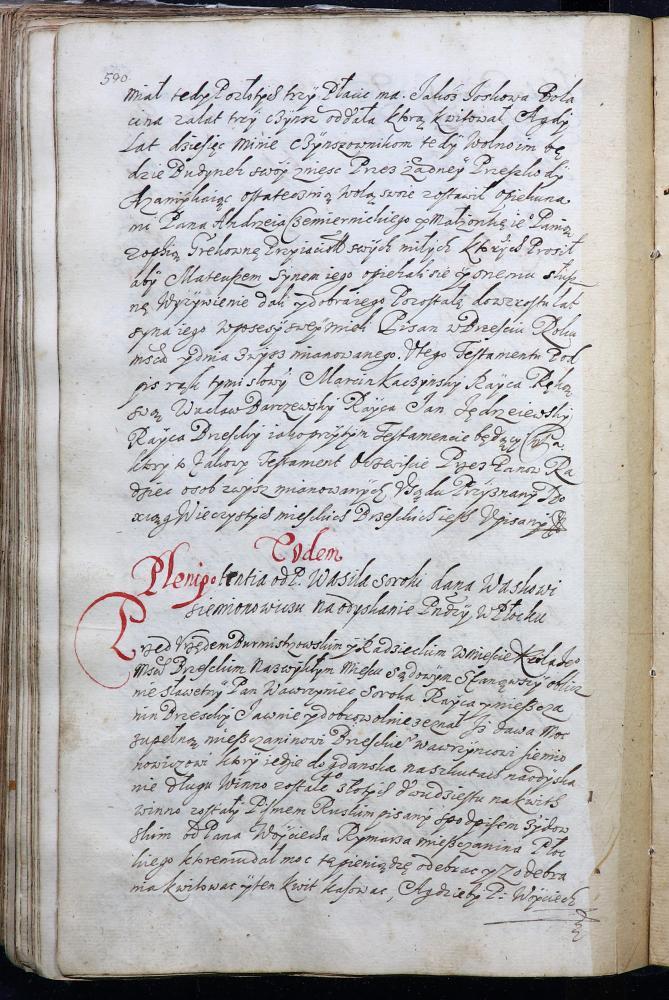 590
Miał tedy Pozłotych trzy Płacic ma. Jakoż Joskowa Bola
cina zalat trzy czynsz oddała ktorą kwitował Agdy
Lat dziesięc minie czynszownikom tedy Wolno im bę
dzie Budynek swoy zniesc Przez żadney Przeszkody
Azamykaiąc ostateczną wolą swoie zostawił opiekuna
mi Pana Andrzeia Czemiernickiego y Małżonkę ie° Panią
Zophią Grekowną Przyiacioł swych miłych ktorych Prosił
aby Mateuszem synem iego opiekali się y onemu słusz
ne Wyżywienie dali y dobra iego Pozostałe do wzrostu lat
syna iego w posesyi swey mieli Pisan w Brzesciu Roku
msca y dnia zwysz mianowanego. U tego Testamentu Pod
pis ręk tymi słowy Marcin Kaczynsky Rayca Ręką
swą Wacław Barczewsky Rayca Jan Jędrzeiewsky
Rayca Brzesky iako przy tym Testamencie będący
ktory to Takowy Testament Oczewiscie Przez Panow Ra
dziec osob zwysz mianowanych Usądu Przyznany Do
xiąg Wieczystych mieskich Brzeskich iest Vpisany
Eodem
Plenipotentia od P. Wasila Soroki dana Waskowi
Siemionowiczu na odyskanie Pndzy w Płocku
Przed Vrzędem Burmistrzowskim y Radzieckim w Miescie Krola Je°
Mści Brzeskim na zwykłym mieiscu sądowym stanąwszy oblicz
nie sławetny Pan Wawrzyniec Soroka Rayca y mieszcza
nin Brzesky Jawnie y dobrowolnie zeznał Iż dawa moc
zupełną mieszczaninowi Brzeskie° Wawrzyncowi Siemio
nowiczowi ktory iedzie do gdanska na szkutach na odyska
nie długu Winno zostałe° złotych dwudziestu na kwith
winno zostały Pismem Ruskim pisany spodpisem żydow
skim od Pana Woyciecha Rymarza mieszczanina Płoc
kiego ktoremu dał moc te pieniądze odebrac y z odebra
nia kwitowac y ten kwit kasowac, Agdzieby P: Woyciech